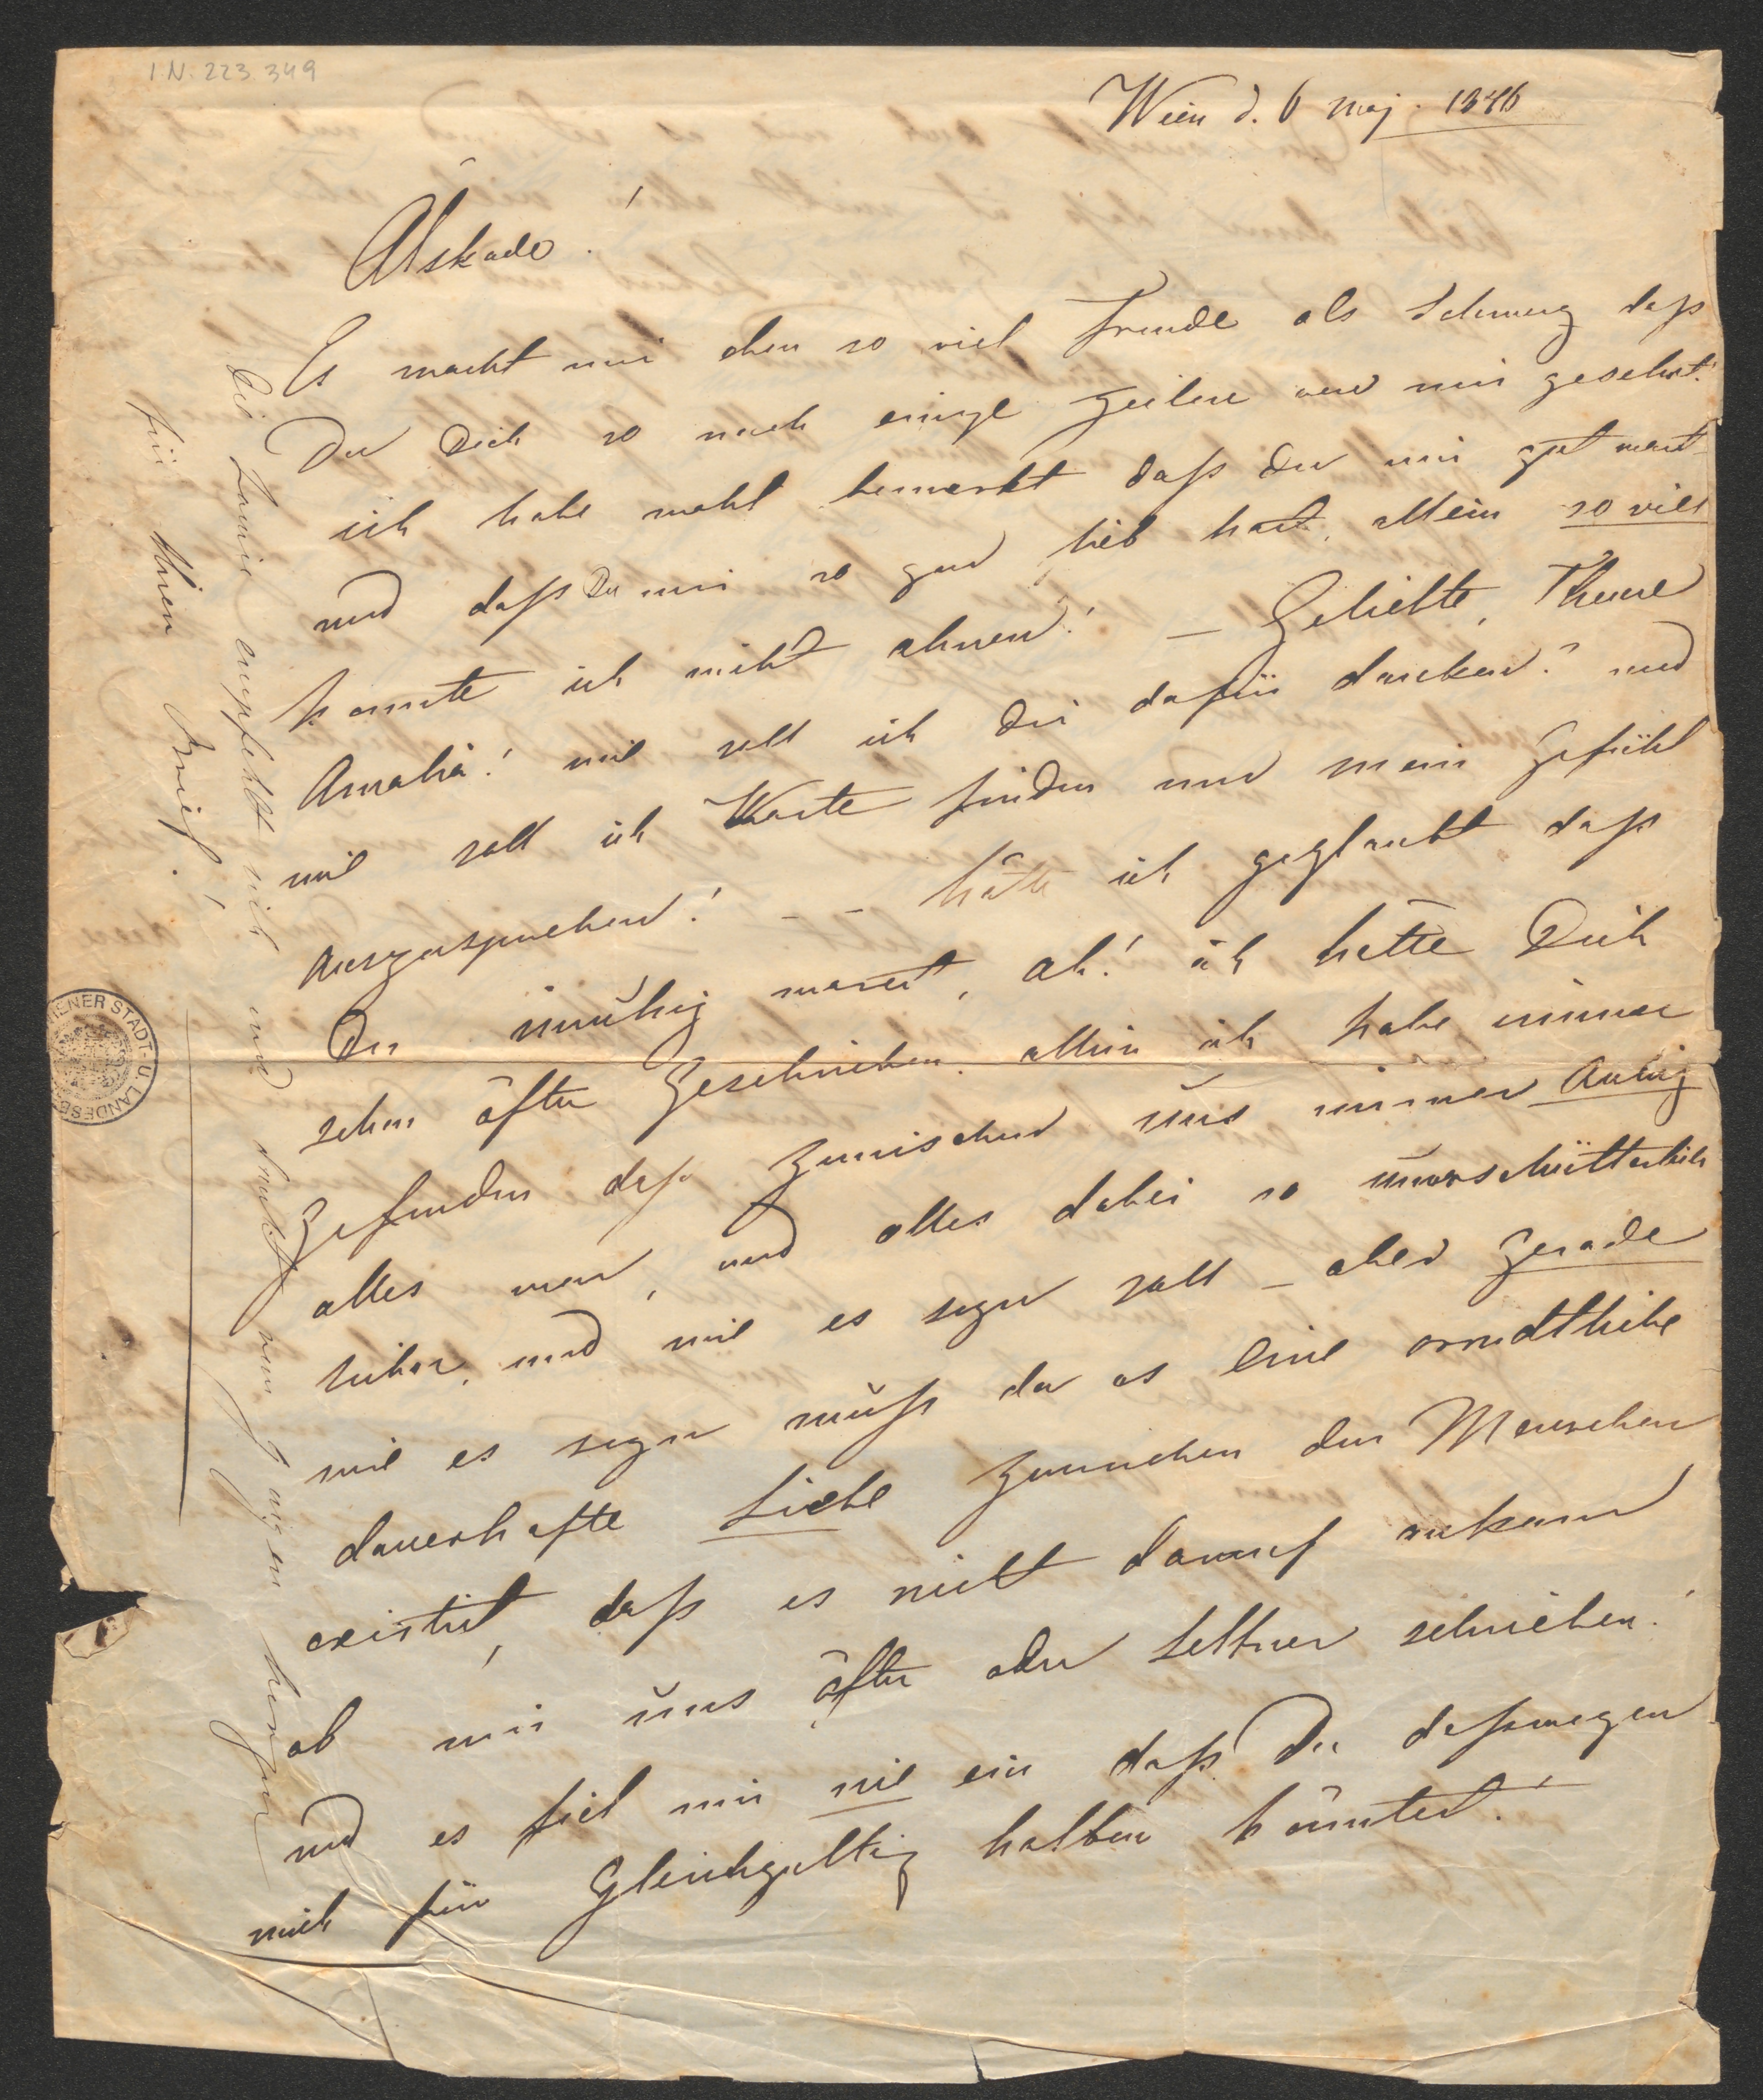 I.N. 223.349
Wien d. 6 Maj. 1846
Älskade!
Es macht mir eben so viel Freude als Schmerz daß
Du Dich so nach einige Zeilen von mir gesehnt!
ich habe wohl bemerkt daß Du mir gut warst
und daß Du mir so gar lieb hast, allein so viel
konnte ich nicht ahnen! — Geliebte, Theure
Amalia! wie soll ich Dir dafür danken? und
wie soll ich Worte finden um mein Gefühl
auszusprechen! — — hätte ich geglaubt daß
Du unruhig warst, ah! ich hätte Dich
schon öfter geschrieben. allein ich habe immer
gefunden daß zwischen uns immer
alles war, und alles dabei so unerschütterlich
sicher, und wie es seyn soll — aber gerade
wie es seyn muß da es eine
dauerhafte Liebe zwischen den Menschen
existirt, daß es nicht darauf ankomt
ob wir uns öfter oder seltner schrieben!
und es fiel mir nie ein daß Du deßwegen
mich für Gleichgultig halten könntest!
Die empfehlt sich und dankt von ganzen herzen
für Ihren Brief!
WIENER STADT- U. LANDESB